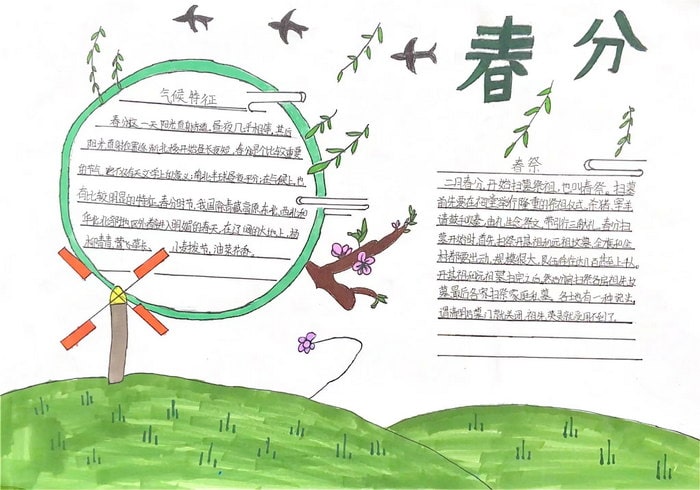 春分
气候特征
春分这一天阳光直射赤道,昼夜几乎相等,其后
阳光直射位置逐渐北移,开始昼长夜短。春分是个比较重要
的节气,它不仅有天文学上的意义:南北半球昼夜平分;在气候上,也
有比较明显的特征,春分时节,我国除青藏高原、东北、西北和
华北北部地区外都进入明媚的春天,在辽阔的大地上,杨
柳青青、莺飞草长、小麦拔节、油菜花香。
春祭
二月春分,开始扫墓祭祖,也叫春祭。扫墓
前先要在祠堂举行隆重的祭祖仪式,杀猪、宰羊,
请鼓手吹奏,由礼生念祭文,带引行三献礼。春分扫
墓开始时,首先扫祭开基祖和远祖坟墓,全族和全
村都要出动,规模很大,队伍往往达几百甚至上千人。
开基祖和远祖墓扫完之后,然后分房扫祭各房祖先坟
墓,最后各家扫祭家庭私墓。
谓清明后墓门就关闭,祖先英灵就受用不到了。